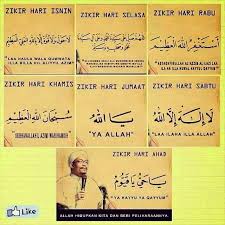 ZIKIR HARI ISNIN
LAA HAULA WALA QUWWATA
ILLA BILLA HIL ALIYYIL AZIM
ZIKIR HARI SELASA
ZIKIR HARI RABU
أستغفر الله العظيم
ZIKIR HARI KHAMIS
سبحان الله العظيم
ZIKIR HARI JUMAAT
يا الله
"YA ALLAH"
ZIKIR HARI SABTU
لا إله إلا الله
"LAA ILAHA ILLA ALLAH"
ZIKIR HARI AHAD
يا حي يا قيوم
"YA HAYYU YA QAYYUM"
ALLAH HIDUPKAN KITA DAN BERI PELIHARAANNYA
Like